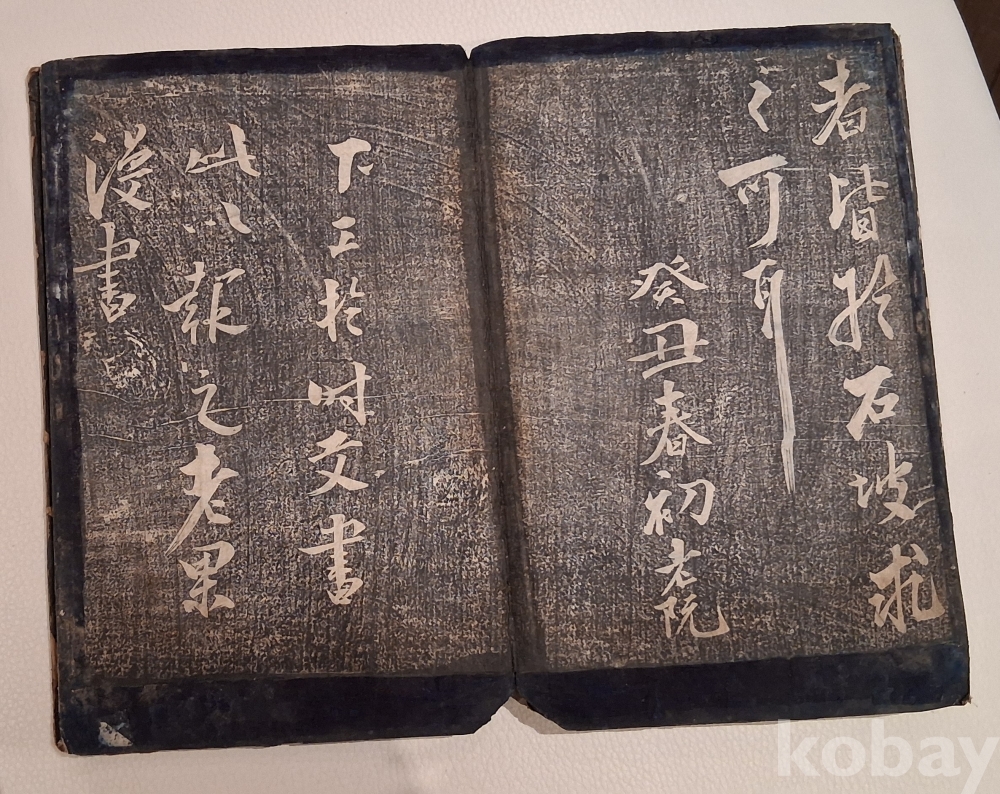 者皆於石坡求
之可耳
癸丑春初老阮
下正於時文書
此以報之老果
漫書
kobay